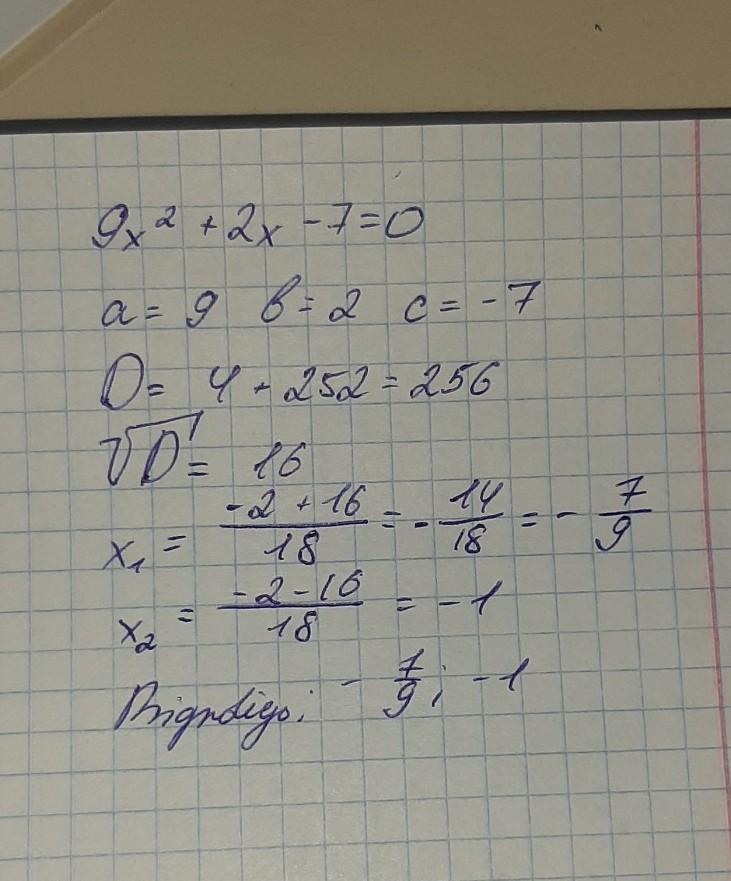 9x² + 2x - 7 = 0
a = 9 в = 2 c = -7
D = 4 + 252 = 256
√D = 16
x₁ = (-2 + 16)/18 = - 14/18 = - 7/9
x₂ = (-2 - 16)/18 = -1
Відповідь: - 7/9; -1